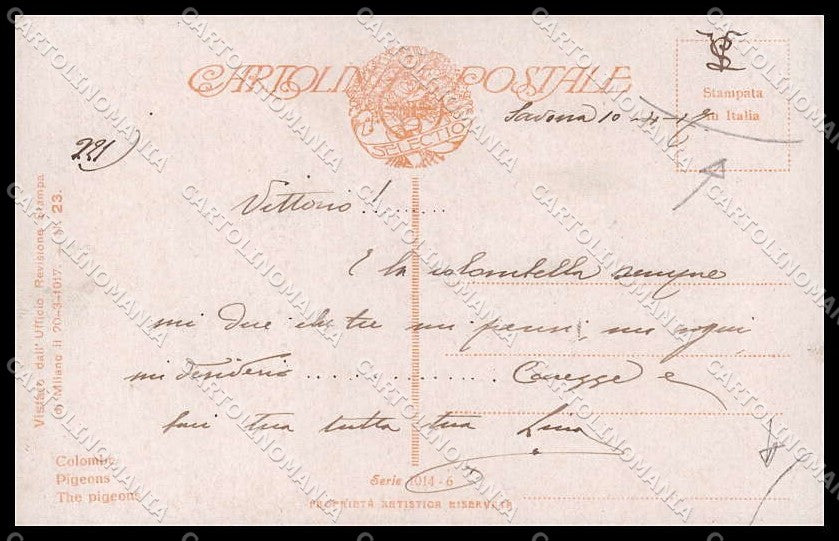 CARTOLINA POSTALE
SELECTIO
Stampata
in Italia
Savona 10
221)
Vittorio!......
E la colombella sempre
mi dice che tu mi pensi, mi
mi desideri .............. e
tua tutta tua Lina
Vistato dall' Ufficio Revisione Stampa
di Milano il 20-3-1917. - N. 23.
Colombe
Pigeons
The pigeons
Serie 1014-6
PROPRIETÀ ARTISTICA RISERVATA
CARTOLINOMANIA